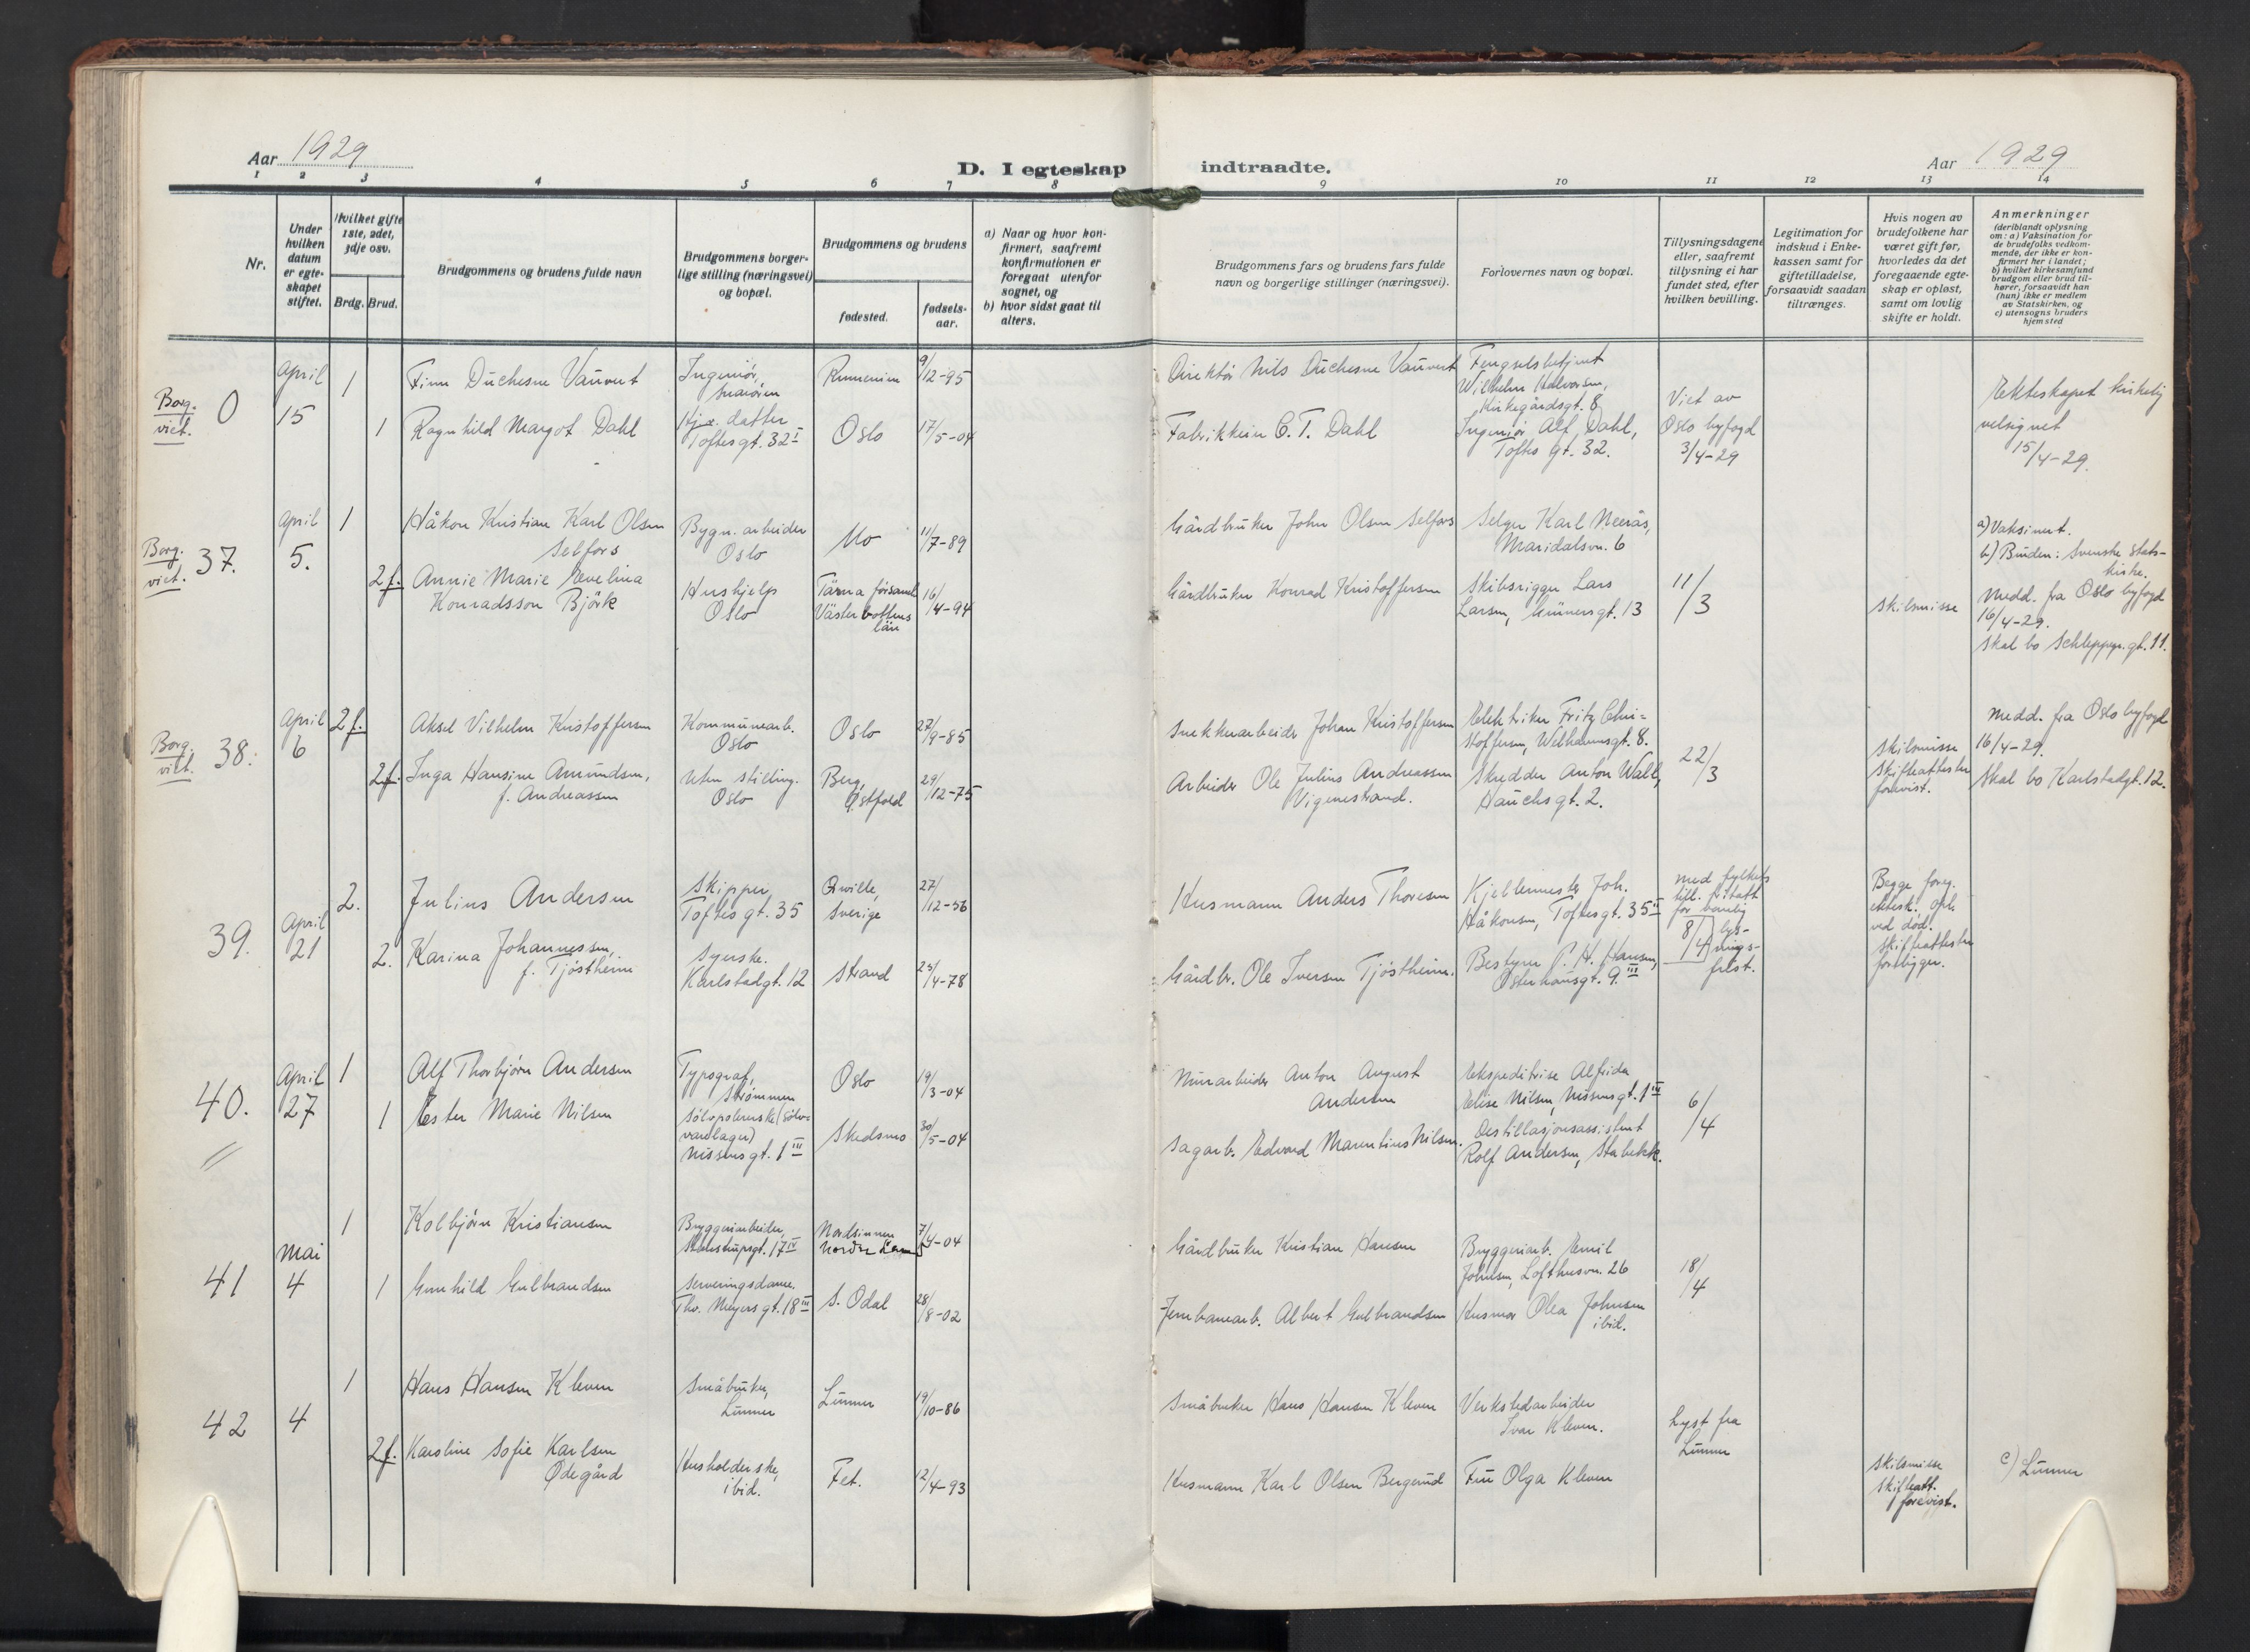 Aar 1929
D. I egteskap indtraadte.
Aar 1929
1 2 3 4 5 6 7 8 9 10 11 12 13 14
Nr.
Under hvilken datum er egteskapet stiftet.
Hvilket gifte 1ste, 2det, 3dje osv.
Brdg. Brud.
Brudgommens og brudens fulde navn
Brudgommens borger-
lige stilling (næringsvei)
og bopæl.
Brudgommens og brudens
fødested.
fødsels-
aar.
a) Naar og hvor kon-
firmert, saafremt
konfirmationen er
foregaat utenfor
sognet, og
b) hvor sidst gaat til
alters.
Brudgommens fars og brudens fars fulde
navn og borgerlige stillinger (næringsvei).
Forlovernes navn og bopæl.
Tillysningsdagene
eller, saafremt
tillysning ei har
fundet sted, efter
hvilken bevilling.
Legitimation for
indskud i Enke-
kassen samt for
giftetilladelse,
forsaavidt saadan
tiltrænges.
Hvis nogen av
brudefolkene har
været gift før,
hvorledes da det
foregaaende egte-
skap er opløst,
samt om lovlig
skifte er holdt.
Anmerkninger
(deriblandt oplysning
om: a) Vaksination for
de brudefolks vedkom-
mende, der ikke er kon-
firmert her i landet;
b) hvilket kirkesamfund
brudgom eller brud til-
hører, forsaavidt han
(hun) ikke er medlem
av Statskirken, og
c) utensogns bruders
hjemsted
Borg.
viet. 0
April
15
1 Finn Duchesne Vauvert
Ingeniør,
9/12-95
Direktør Nils Duchesne Vauvert
Fengselsbetjent
Wilhelm Halvorsen,
Kirkegårdsgt. 8
1 Ragnhild Margot Dahl
Hj.v. datter
Toftesgt. 32 I
Oslo
17/5-04
Fabrikkeier C. T. Dahl
Ingeniør Alf Dahl,
Toftes gt. 32.
Viet av
Oslo byfogd
3/4-29
Ekteskapet kirkelig
velsignet
15/4-29.
Borg.
viet. 37.
April
5.
1 Håkon Kristian Karl Olsen
Selfors
Bygn. arbeider
Oslo
Mo
11/7-89
Gårdbruker John Olsen Selfors
Selger Karl Meerås,
Maridalsvn. 6
2 f. Annie Marie Evelina
Konradsson Björk
Hushjelp
Oslo
Tärna församl.
Västerbottens
län
16/4-94
Gårdbruker Konrad Kristoffersen
Skibsrigger Lars
Larsen, Grünersgt. 13
11/3
Skilsmisse
a) Vaksinert.
b) Bruden: Svenske stats-
kirke.
Medd. fra Oslo byfogd
16/4-29.
Skal bo Schleppegr.gt. 11.
Borg.
viet. 38.
April
6
2 f. Aksel Vilhelm Kristoffersen
Kommunearb.
Oslo
Oslo
27/9-85
Snekkerarbeider Johan Kristoffersen
Elektriker Fritz Chri-
stoffersen, Welhavensgt. 8.
2 f. Inga Hansine Amundsen,
f. Andreassen
Uten stilling.
Oslo
Berg,
Østfold
29/12-75
Arbeider Ole Julius Andreassen
Vigenestrand.
Skredder Anton Wall,
Hauchsgt. 2.
22/3
Skilsmisse
Skifteattester
forevist.
Medd. fra Oslo byfogd
16/4-29.
Skal bo Karlstadgt. 12.
39.
April
21
2. Julius Andersen
Skipper,
Toftesgt. 35
Qwille,
Sverige
27/12-56
Husmann Anders Thoresen
Kjellermester Joh.
Håkonsen, Toftesgt. 35 II
2. Karina Johannessen,
f. Tjøstheim
Syerske.
Karlstadgt. 12
Strand
23/4-78
Gårdbr. Ole Iversen Tjøstheim.
Bestyrer P. H. Hansen,
Osterhausgt. 9. III
med fylkets
till. fritatt
for vanlig
lys-
nings-
frist.
8/4
Begge foreg.
ektesk. opl.
ved død.
Skifteattester
foreligger.
40.
April
27
1 Alf Thorbjørn Andersen
Typograf,
Strømmen
Oslo
19/3-04
Murarbeider Anton August
Andersen
Ekspeditrise Alfrida
Elise Nilsen, Nissensgt. 1 IV
1 Ester Marie Nilsen
Sølvpolererske (sølv-
varelager)
Nissensgt. 1 III
Skedsmo
30/5-04
Sagarb. Edvard Marentius Nilsen.
Destillasjonsassistent
Rolf Andersen, Stabekk.
6/4
41
Mai
4
1 Kolbjørn Kristiansen
Bryggeriarbeider,
17 IV
Nordsinnen
Nordre Land
7/4-04
Gårdbruker Kristian Hansen
Bryggeriarb. Emil
Johnsen, Lofthusvn. 26
1 Gunhild Gulbrandsen
Serveringsdame.
Thv. Meyersgt. 18 III
S. Odal
28/8-02
Jernbanearb. Albert Gulbrandsen
Husmor Olea Johnsen
ibid.
18/4
42
4
1 Hans Hansen Kleven
Småbruker,
Lunner
Lunner
19/10-86
Småbruker Hans Hansen Kleven
Verkstedarbeider
Ivar Kleven.
2 f. Karoline Sofie Karlsen
Ødegård
Husholderske,
ibid.
Fet.
12/4-93
Husmann Karl Olsen Bergerud
Fru Olga Kleven
Lyst fra
Lunner
Skilsmisse
Skifteatt.
forevist.
c) Lunner